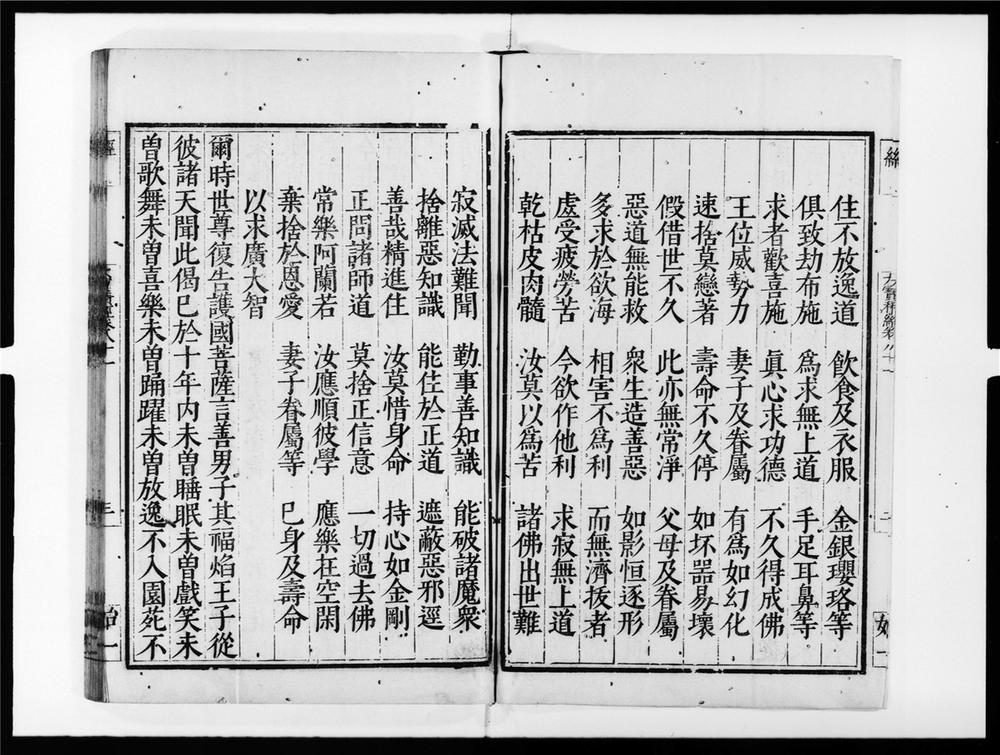 住不放逸道 飲食及衣服 金銀瓔珞等
俱致劫布施 爲求無上道 手足耳鼻等
求者歡喜施 眞心求功德 不久得成佛
王位威勢力 妻子及眷屬 有爲如幻化
速捨莫戀著 壽命不久停 如坏器易壞
假借世不久 此亦無常淨 父母及眷屬
惡道無能救 衆生造善惡 如影恒逐形
多求於欲海 相害不爲利 而無濟拔者
虗受疲勞苦 今欲作他利 求寂無上道
乾枯皮肉髓 汝莫以爲苦 諸佛出世難
寂滅法難聞 勤事善知識 能破諸魔衆
捨離惡知識 能住於正道 遮蔽惡邪逕
善哉精進住 汝莫惜身命 持心如金剛
正問諸師道 莫捨正信意 一切過去佛
常樂阿蘭若 汝應順彼學 應樂在空閑
棄捨於恩愛 妻子眷屬等 已身及壽命
以求廣大智
爾時世尊復告護國菩薩言善男子其福焰王子從
彼諸天聞此偈已於十年內未曾睡眠未曾戲笑未
曾歌舞未曾喜樂未曾踊躍未曾放逸不入園苑不